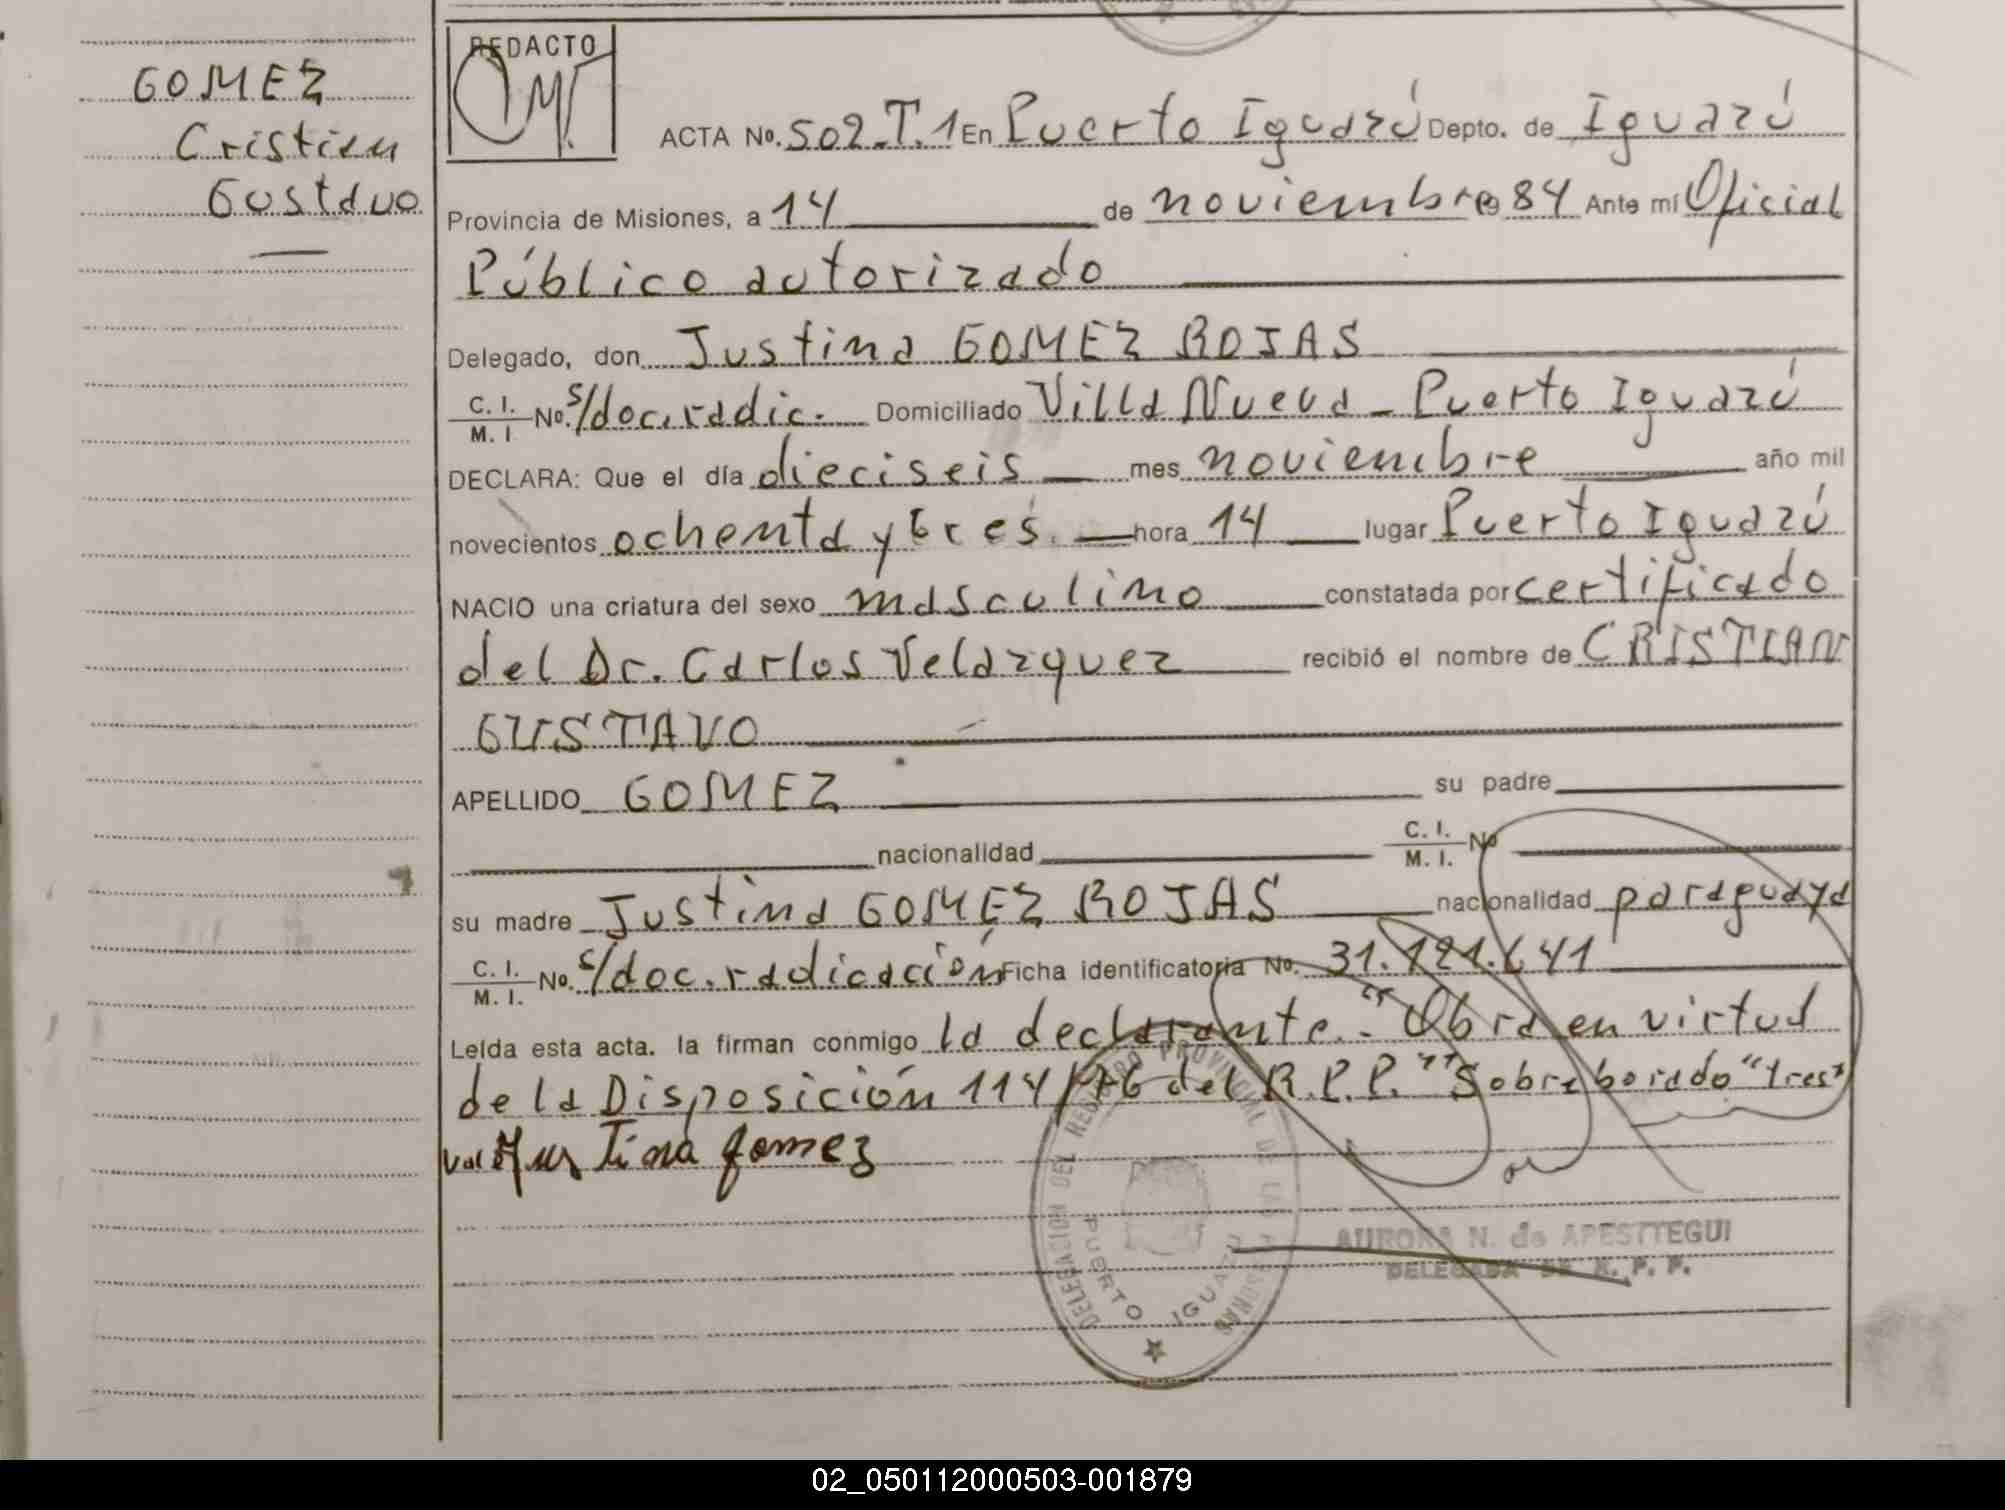 GOMEZ
Cristian
Gustavo
REDACTO
ACTA No. 502.T.1 En Puerto Iguazú Depto. de Iguazú
Provincia de Misiones, a 14 de noviembre 84 Ante mí Oficial
Público autorizado
Delegado, don Justina GOMEZ ROJAS
C. I. / M. I. No. s/doc.radic. Domiciliado Villa Nueva - Puerto Iguazú
DECLARA: Que el día dieciseis mes noviembre año mil
novecientos ochenta y tres. hora 14 lugar Puerto Iguazú
NACIO una criatura del sexo masculino constatada por certificado
del Dr. Carlos Velazquez recibió el nombre de CRISTIAN
GUSTAVO
APELLIDO GOMEZ su padre
nacionalidad C. I. / M. I. No
su madre Justina GOMEZ ROJAS nacionalidad paraguaya
C. I. / M. I. No. s/doc.radicación Ficha identificatoria No. 31.121.641
Leída esta acta. la firman conmigo la declarante.- "Obra en virtud
de la Disposición 114/76 del R.P.P." "Sobreborrado "tres"
Justina gomez
DELEGACION DEL REGISTRO PROVINCIAL DE LAS PERSONAS
PUERTO IGUAZU
AURORA N. de APESTTEGUI
DELEGADA DE R. P. P.
02_050112000503-001879